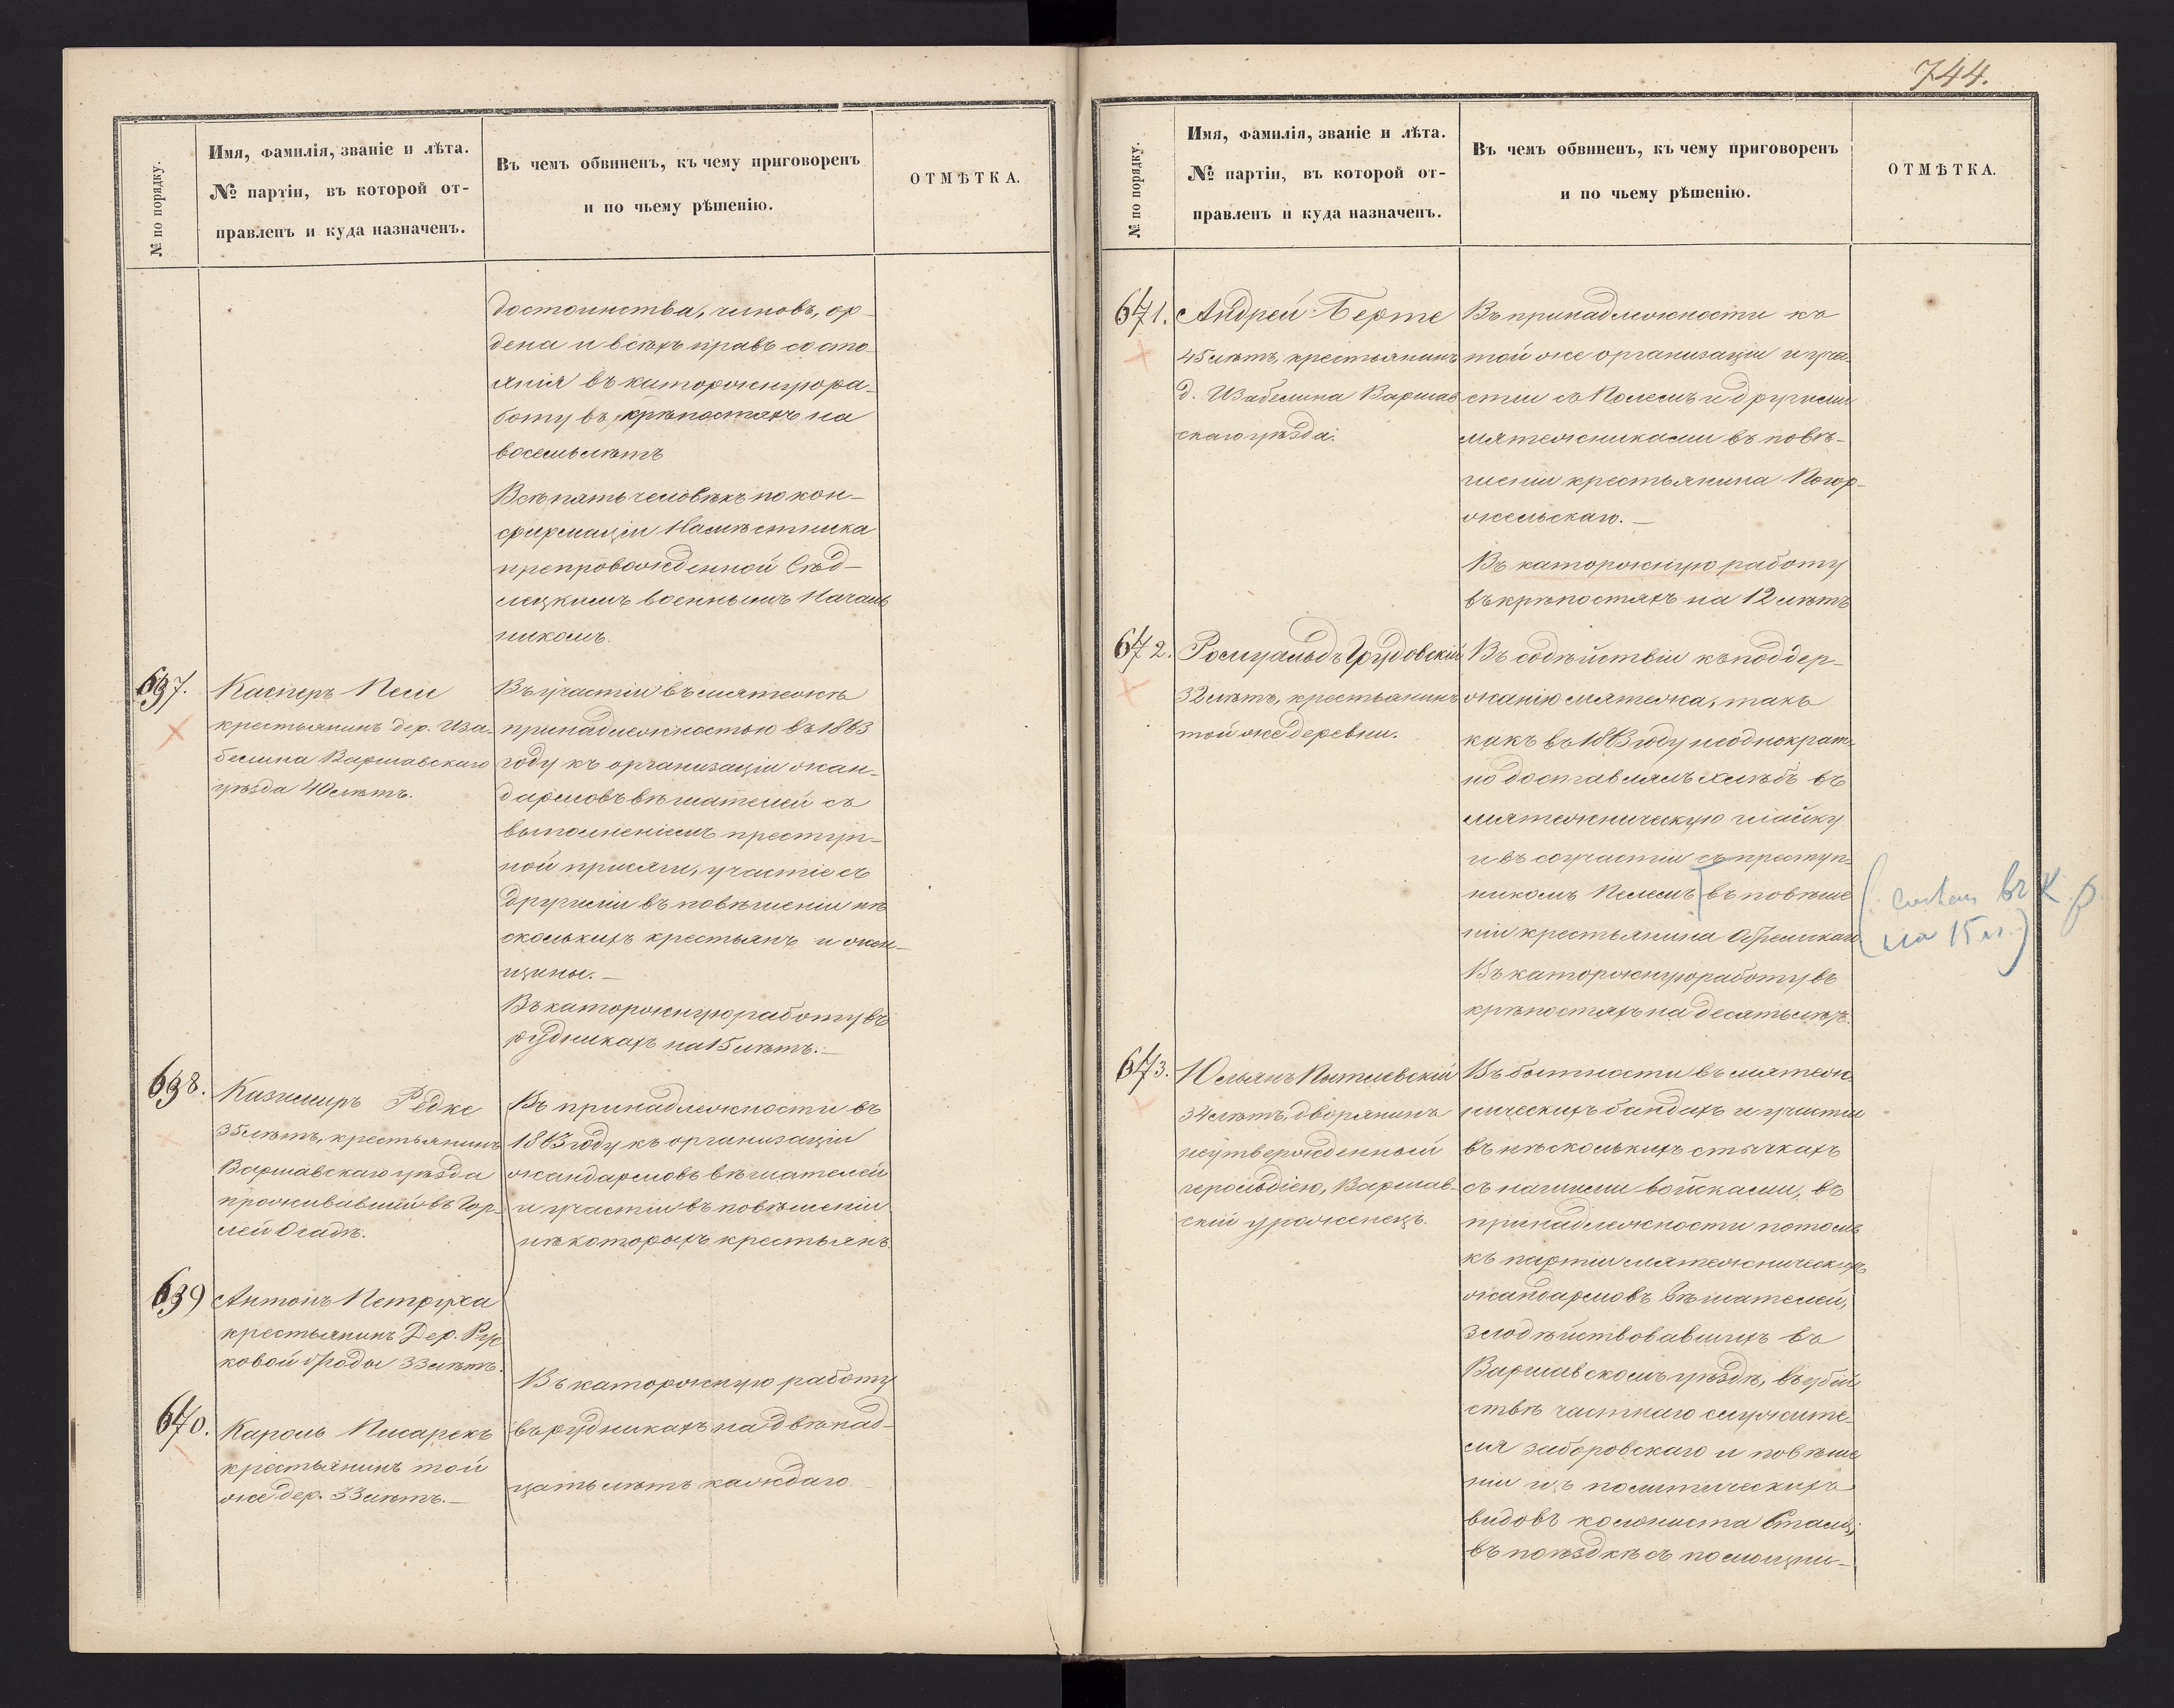 744.
№ по порядку.
Имя, фамилія, званіе и лѣта.
№ партіи, въ которой от-
правленъ и куда назначенъ.
Въ чемъ обвиненъ, къ чему приговоренъ
и по чьему рѣшенію.
ОТМѢТКА.
достоинства, чиновъ, ор-
дена и всѣхъ правъ состо-
янія въ каторожную ра-
боту въ крѣпостяхъ на
восемь лѣтъ
Всѣ пять человѣкъ по кон-
фирмаціи Намѣстника
препровожденной Сѣд-
лецкимъ военнымъ Началь
никомъ.
667.
Касперъ Пель
крестьянинъ дер. Иза-
белина Варшавскаго
уѣзда 40 лѣтъ.
Въ участіи въ мятежѣ
принадлежностью въ 1863
году къ организаціи жан-
дармовъ вѣшателей съ
выполненіемъ преступ-
ной присяги, участіе съ
другими въ повѣшеніи нѣ
сколькихъ крестьянъ и жен-
щины.-
Въ каторожную работу въ
рудникахъ на 15 лѣтъ.-
668.
Казимиръ Редке
35 лѣтъ, крестьянинъ
Варшавскаго уѣзда
проживавшій въ Гор-
лей Осадѣ.
Въ принадлежности въ
1863 году къ организаціи
жандармовъ вѣшателей
и участіи въ повѣшеніи
нѣкоторыхъ крестьянъ.
669
Антонъ Петруха
крестьянинъ Дер.
ковой 33 лѣтъ.
670.
Кароль Писарекъ
крестьянинъ той
же дер. 33 лѣтъ.-
Въ каторожную работу
въ рудникахъ на двѣнад-
цать лѣтъ каждаго
№ по порядку.
Имя, фамилія, званіе и лѣта.
№ партіи, въ которой от-
правленъ и куда назначенъ.
Въ чемъ обвиненъ, къ чему приговоренъ
и по чьему рѣшенію.
ОТМѢТКА.
671.
Андрей Берте
45 лѣтъ, крестьянинъ
д. Изабелина Варшав
скаго уѣзда.
Въ принадлежности къ
той же организаціи и уча-
стіи съ Пелемъ и другими
мятежниками въ повѣ-
шеніи крестьянина Погор-
жельскаго.-
Въ каторожную работу
въ крѣпостяхъ на 12 лѣтъ
672.
Ромуальдъ Грудовскій
32 лѣтъ, крестьянинъ
той же деревни.
Въ содѣйствіи къ поддер-
жанію мятежа, такъ
какъ въ 1863 году неоднократ-
но доставлялъ хлѣбъ въ
мятежническую шайку
и въ соучастіи съ преступ-
никомъ Пелемъ въ повѣше
ніи крестьянина
Въ каторожную работу въ
крѣпостяхъ на десять лѣтъ.
въ К. р.
на 15 л.)
673.
Юльянъ
34 лѣтъ, дворянинъ
неутвержденный
герольдіею, Варшав-
скій уроженецъ.
Въ бытности въ мятеж-
ническихъ бандахъ и участіи
въ нѣсколькихъ стычкахъ
съ нашими войсками, въ
принадлежности потомъ
къ партіи мятежническихъ
жандармовъ вѣшателей,
злодѣйствовавшихъ въ
Варшавскомъ уѣздѣ, въ убій
ствѣ частнаго служите-
ля заборовскаго и повѣше
ніи изъ политическихъ
видовъ колониста
въ поѣздкѣ съ помощни-